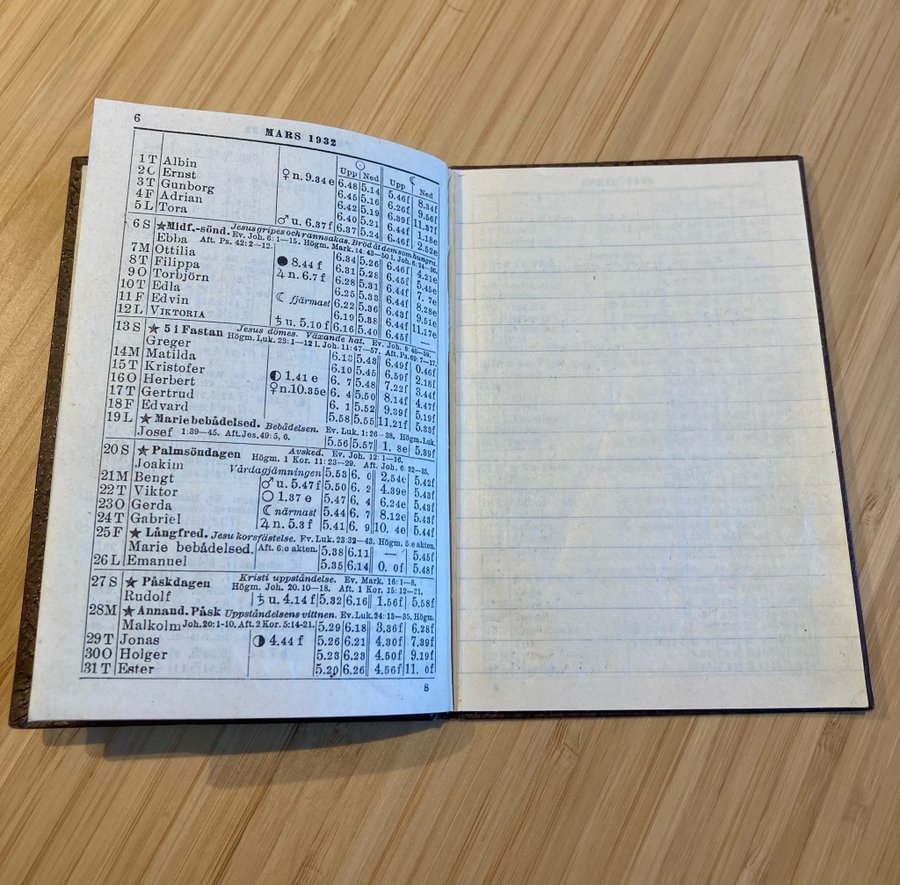 6
MARS 1932
☉ ☾
Upp Ned Upp Ned
1 T Albin ♀ n. 9.34 e 6.48 5.14 5.46f 8.34f
2 O Ernst 6.45 5.16 6.26f 9.56f
3 T Gunborg 6.42 5.19 6.39f 11.37f
4 F Adrian 6.40 5.21 6.44f 1.18e
5 L Tora ♂ u. 6.37 f 6.37 5.24 6.46f 2.52e
6 S ★ Midf.-sönd. Jesus gripes och rannsakas. Bröd åt dem som hungra.
Ev. Joh. 6: 1—15. Högm. Mark. 14: 43—50
Ebba Aft. Ps. 42: 2—12. 6.34 5.26 6.46f 4.21e
7 M Ottilia ● 8.44 f 6.31 5.28 6.45f 5.45e
8 T Filippa ♃ n. 6.7 f 6.28 5.31 6.44f 7. 7e
9 O Torbjörn 6.25 5.33 6.44f 8.28e
10 T Edla ☾ fjärmast 6.22 5.36 6.43f 9.51e
11 F Edvin 6.19 5.38 6.44f 11.17e
12 L VIKTORIA ♄ u. 5.10 f 6.16 5.40 6.45f —
13 S ★ 5 i Fastan Jesus dömes. Växande hat. Ev. Joh. 8: 46—59.
Greger Högm. Luk. 23: 1—12 Joh. 11: 47—57. Aft. Ps. 69: 7—17.
6.13 5.43 6.49f 0.46f
14 M Matilda 6.10 5.45 6.59f 2.18f
15 T Kristofer ◐ 1.41 e 6. 7 5.48 7.22f 3.44f
16 O Herbert ♀ n. 10.35e 6. 4 5.50 8.14f 4.47f
17 T Gertrud 6. 1 5.52 9.39f 5.19f
18 F Edvard 5.58 5.55 11.21f 5.33f
19 L ★ Marie bebådelsed. Bebådelsen. Ev. Luk. 1: 26—38. Högm. Luk.
Josef 1:39—45. Aft. Jes. 49: 5, 6. 5.56 5.57 1. 8e 5.39f
20 S ★ Palmsöndagen Avsked. Ev. Joh. 12: 1—16.
Högm. 1 Kor. 11: 23—29. Aft. Joh. 6: 32—35.
Joakim Vårdagjämningen 5.53 6. 0 2.54e 5.42f
21 M Bengt ♂ u. 5.47 f 5.50 6. 2 4.39e 5.43f
22 T Viktor ○ 1.37 e 5.47 6. 4 6.24e 5.43f
23 O Gerda ☾ närmast 5.44 6. 7 8.12e 5.43f
24 T Gabriel ♃ n. 5.3 f 5.41 6. 9 10. 4e 5.44f
25 F ★ Långfred. Jesu korsfästelse. Ev. Luk. 23:32—43. Högm. 5:e akten.
Marie bebådelsed. Aft. 6:e akten. 5.38 6.11 — 5.45f
26 L Emanuel 5.35 6.14 0. 0f 5.48f
27 S ★ Påskdagen Kristi uppståndelse. Ev. Mark. 16: 1—8.
Högm. Joh. 20. 10—18. Aft. 1 Kor. 15: 12—21.
Rudolf ♄ u. 4.14 f 5.32 6.16 1.56f 5.58f
28 M ★ Annand. Påsk Uppståndelsens vittnen. Ev. Luk. 24: 13—35. Högm.
Malkolm Joh. 20: 1-10. Aft. 2 Kor. 5:14-21. 5.29 6.18 3.36f 6.28f
29 T Jonas ◑ 4.44 f 5.26 6.21 4.30f 7.39f
30 O Holger 5.23 6.23 4.50f 9.19f
31 T Ester 5.20 6.26 4.56f 11. 0f
8